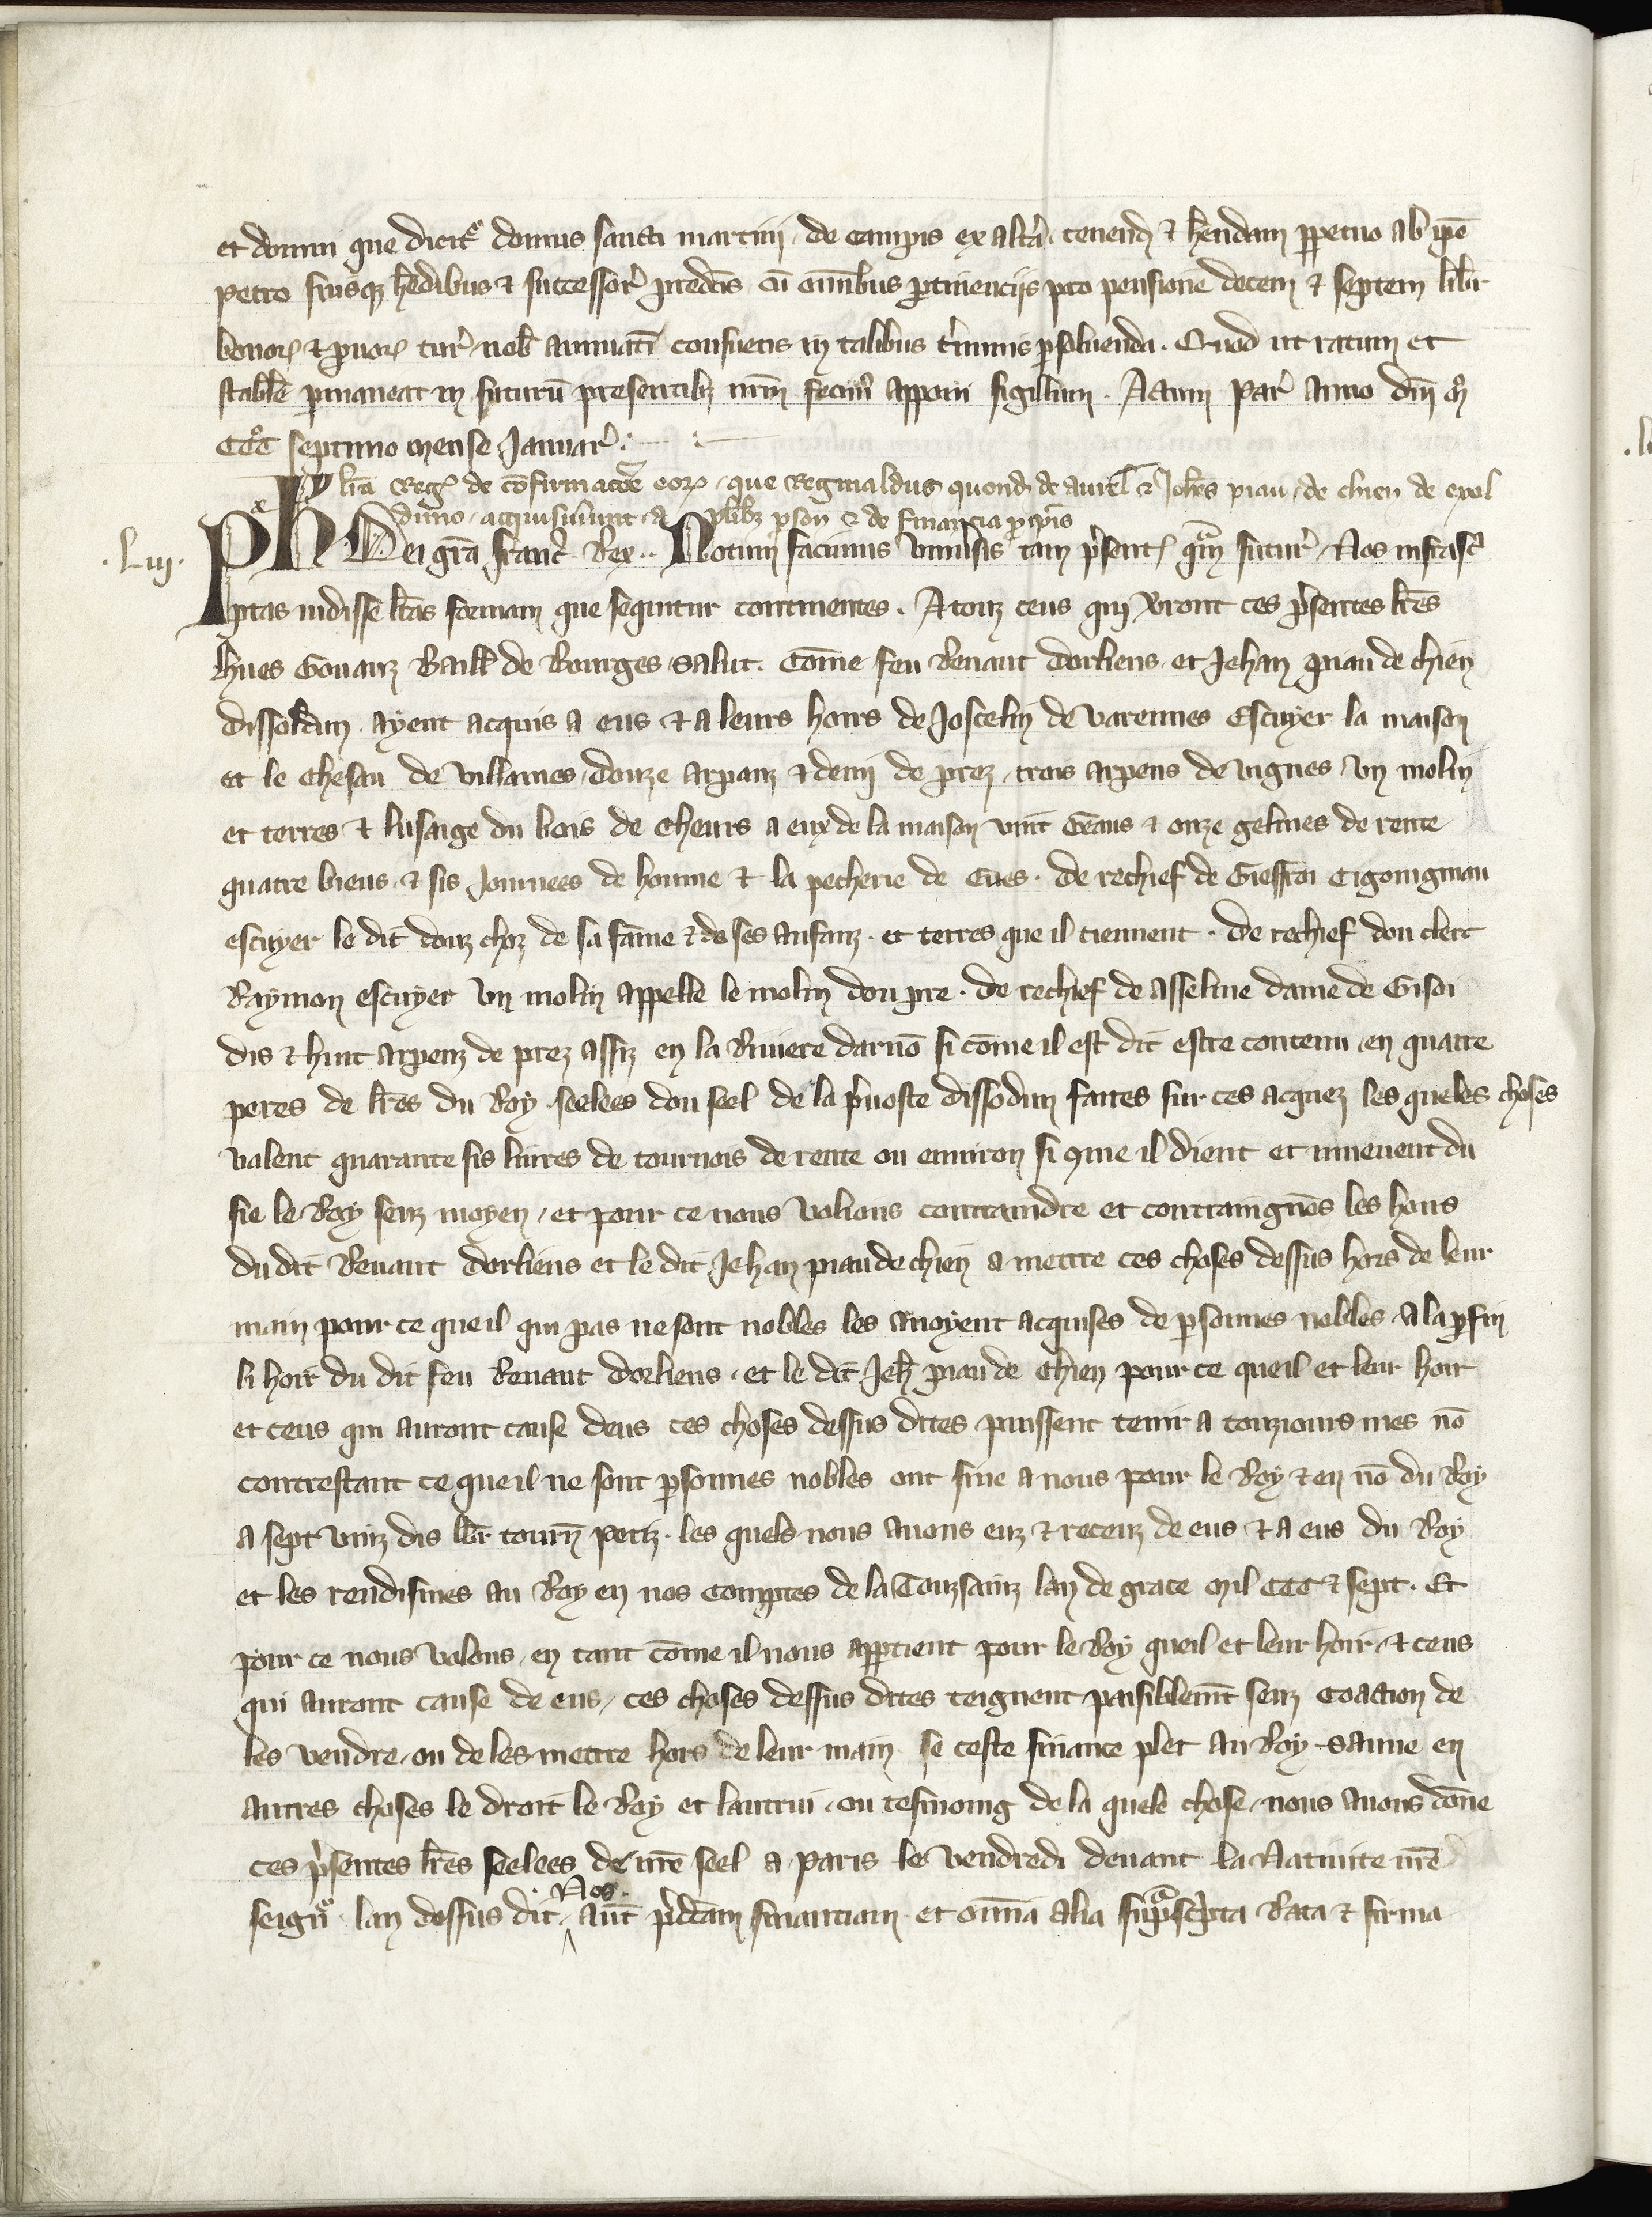 et domui que dicit᷑ domus sancti martini de campis ex alt̃a tenend̃ ⁊ hẽndam ꝑpetuo ab ip̃o
petro suisqꝫ hẽdibus ⁊ successor᷑ predc̃is cũ om̃ibus ꝑtinenciis pro pensione decem ⁊ septem libr᷑
bonoꝝ ⁊ ꝑuoꝝ tur᷑ nob̃ annuati consuetis in talibus t̃minis ꝑsoluenda. Quod ut ratum et
stabile ꝑmaneat in futurũ presentibꝫ nr̃m fecim᷒ apponi sigillum. Actum Par᷑ anno dñi mͦ
CCCͦ septimo mense Januar᷑
lr̃a Reg᷑ de cõfirmacõe eoꝝ que Reginaldus quond̃ de aurel̃ ⁊ Joh̃es piau de chien de exol
duno acquisiuerunt a pl̃ibꝫ ꝑson̄ ⁊ de financia
.Liij.
Ph Dei gr̃a franc᷑ Rex.. Notum facimus vniu̾sis tam p̃sent᷑ qᵃm futur᷑ Nos infrasc᷑
ptas uidisse lr̃as formam que sequitur continentes. A touz ceus qui v̾ront ces p̃sentes lr̃es
hues Gouauz Baill̃ de Bourges salut. Cõme feu Renaut dorliens et Jehan piau de chien
dissoldun ayent acquis a eus ⁊ a leurs hoirs de Joscelin de varennes Escuyer la maison
et le chesau de villaines douze arpanz ⁊ demi de prez trois arpens de vignes vn molin
et terres ⁊ lusaige du bois de cheurs a eux de la maison vint ⁊ onze gelines de rente
quatre biens ⁊ sis Journees de homme ⁊ la pecherie de eues. De rechief de Gieffroi Cigoingniau
escuyer le dit douz choz de sa fame ⁊ de ses anfanz et terres que il tiennent. De rechief dou clerc
Raymon escuyer vn molin appelle le molin dou pre. De rechief de Asseline dame de Gisoi
dis ⁊ huit arpenz de prez assiz en la Riuiere darnõ si cõme il est dit estre contenu en quatre
peres de lr̃es du Roy seelees dou seel de la p̃uoste dissodun faites sur ces acquez les queles choses
valent quarante sis liures de tournois de rente ou enuiron si ꝯme il dient et muevent du
fie le Roy senz moyen et pour ce nous volions contraindre et contraingnõs les hoirs
du dit Renaut dorliens et le dit Jehan piau de chien a mettre ces choses dessus hors de leur
main pour ce que il qui pas ne sont nobles les auoyent acquises de ꝑsonnes nobles a la ꝑfin
li hoir du dit feu Renaut dorliens et le dit Jeh̃ piau de chien pour ce queil et leur hoir
et ceus qui auront cause deus ces choses dessus dites puissent tenir a touziours mes nõ
contrestant ce que il ne sont ꝑsonnes nobles ont fine a nous pour le Roy ⁊ en nõ du Roy
a sept vinz dis lib᷑ tourñ petiz les quels nous auons euz ⁊ receuz de eus ⁊ a eus du Roy
et les rendismes au Roy en nos Comptes de la Touzsainz lan de grace Mil CCC ⁊ sept. Et
pour ce nous volons en tant cõme il nous apꝑtient pour le Roy queil et leur hoir ⁊ ceus
qui auront cause de eus ces choses dessus dites teignent paisiblemt̃ senz coaction de
les vendre ou de les mettre hors de leur main se ceste finance plet au Roy sauue en
autres choses le droit le Roy et lautrui ou tesmoing de la quele chose nous auons dõne
ces p̃sentes lr̃es seelees de nr̃e seel a Paris le vendredi deuant la Natiuite nr̃e
seign᷑ lan dessus dit Nos aut̃ p̃dc̃am financiam et om̃ia alia supᵃsc̃pta Rata ⁊ firma